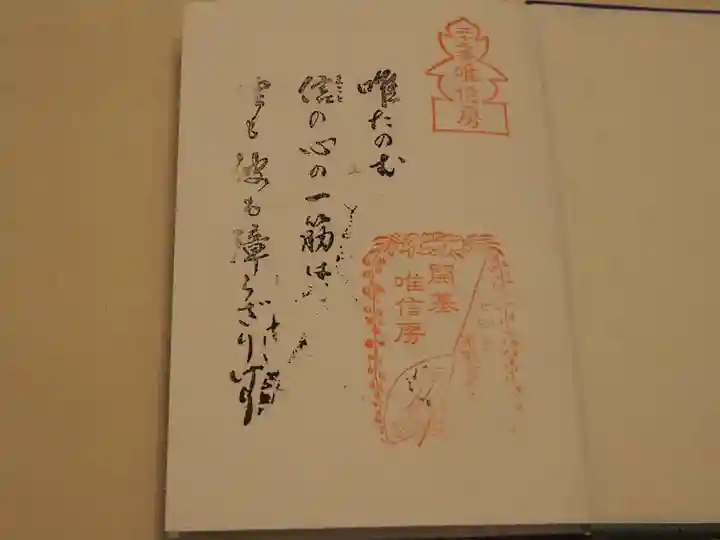 二十二番 唯信房
唯たのむ
信の心の一筋は
まこと
雲も波も障らざりけり
開基
唯信房